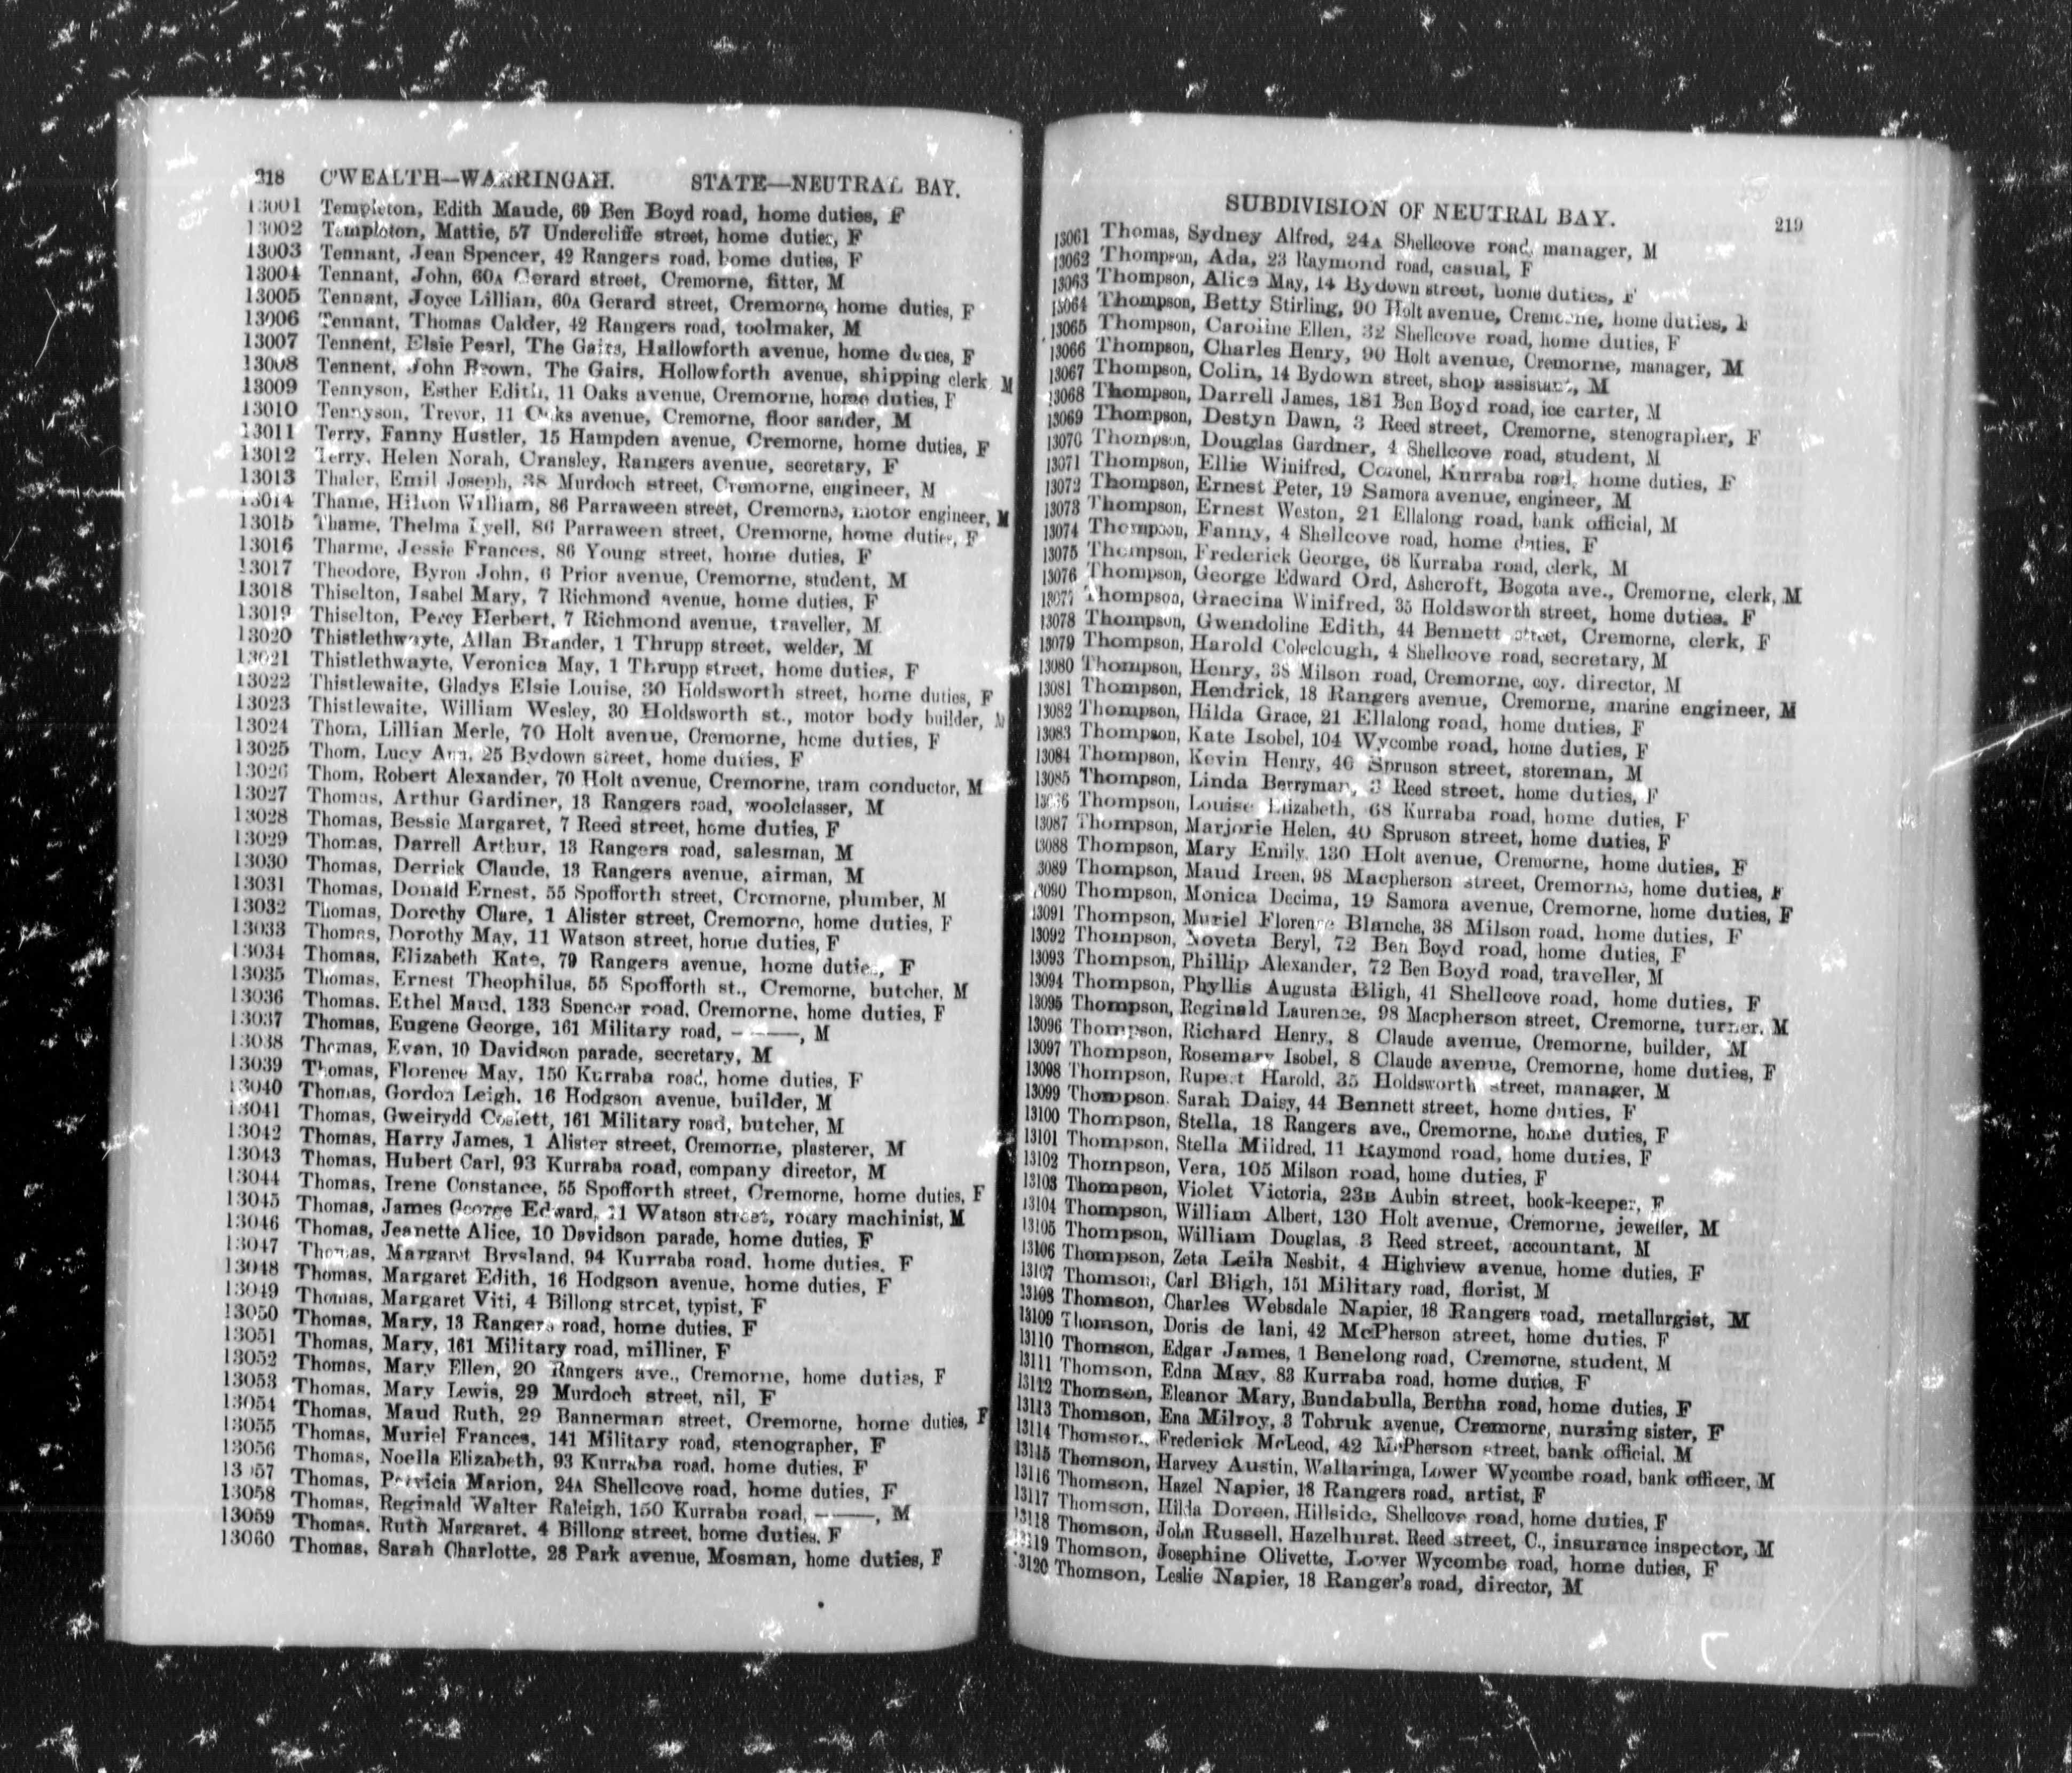 218 C'WEALTH—WARRINGAH. STATE—NEUTRAL BAY.
13001 Templeton, Edith Maude, 69 Ben Boyd road, home duties, F
13002 Templeton, Mattie, 57 Undercliffe street, home duties, F
13003 Tennant, Jean Spencer, 42 Rangers road, home duties, F
13004 Tennant, John, 60A Gerard street, Cremorne, fitter, M
13005 Tennant, Joyce Lillian, 60A Gerard street, Cremorne, home duties, F
13006 Tennant, Thomas Calder, 42 Rangers road, toolmaker, M
13007 Tennent, Elsie Pearl, The Gairs, Hallowforth avenue, home duties, F
13008 Tennent, John Brown, The Gairs, Hollowforth avenue, shipping clerk M
13009 Tennyson, Esther Edith, 11 Oaks avenue, Cremorne, home duties, F
13010 Tennyson, Trevor, 11 Oaks avenue, Cremorne, floor sander, M
13011 Terry, Fanny Hustler, 15 Hampden avenue, Cremorne, home duties, F
13012 Terry, Helen Norah, Cransley, Rangers avenue, secretary, F
13013 Thaler, Emil Joseph, 38 Murdoch street, Cremorne, engineer, M
13014 Thame, Hilton William, 86 Parraween street, Cremorne, motor engineer, M
13015 Thame, Thelma Lyell, 86 Parraween street, Cremorne, home duties, F
13016 Tharme, Jessie Frances, 86 Young street, home duties, F
13017 Theodore, Byron John, 6 Prior avenue, Cremorne, student, M
13018 Thiselton, Isabel Mary, 7 Richmond avenue, home duties, F
13019 Thiselton, Percy Herbert, 7 Richmond avenue, traveller, M
13020 Thistlethwayte, Allan Brander, 1 Thrupp street, welder, M
13021 Thistlethwayte, Veronica May, 1 Thrupp street, home duties, F
13022 Thistlewaite, Gladys Elsie Louise, 30 Holdsworth street, home duties, F
13023 Thistlewaite, William Wesley, 30 Holdsworth st., motor body builder, M
13024 Thom, Lillian Merle, 70 Holt avenue, Cremorne, home duties, F
13025 Thom, Lucy Ann, 25 Bydown street, home duties, F
13026 Thom, Robert Alexander, 70 Holt avenue, Cremorne, tram conductor, M
13027 Thomas, Arthur Gardiner, 13 Rangers road, woolclasser, M
13028 Thomas, Bessie Margaret, 7 Reed street, home duties, F
13029 Thomas, Darrell Arthur, 13 Rangers road, salesman, M
13030 Thomas, Derrick Claude, 13 Rangers avenue, airman, M
13031 Thomas, Donald Ernest, 55 Spofforth street, Cremorne, plumber, M
13032 Thomas, Dorothy Clare, 1 Alister street, Cremorne, home duties, F
13033 Thomas, Dorothy May, 11 Watson street, home duties, F
13034 Thomas, Elizabeth Kate, 79 Rangers avenue, home duties, F
13035 Thomas, Ernest Theophilus, 55 Spofforth st., Cremorne, butcher, M
13036 Thomas, Ethel Maud, 133 Spencer road, Cremorne, home duties, F
13037 Thomas, Eugene George, 161 Military road, ———, M
13038 Thomas, Evan, 10 Davidson parade, secretary, M
13039 Thomas, Florence May, 150 Kurraba road, home duties, F
13040 Thomas, Gordon Leigh, 16 Hodgson avenue, builder, M
13041 Thomas, Gweirydd Coslett, 161 Military road, butcher, M
13042 Thomas, Harry James, 1 Alister street, Cremorne, plasterer, M
13043 Thomas, Hubert Carl, 93 Kurraba road, company director, M
13044 Thomas, Irene Constance, 55 Spofforth street, Cremorne, home duties, F
13045 Thomas, James George Edward, 11 Watson street, rotary machinist, M
13046 Thomas, Jeanette Alice, 10 Davidson parade, home duties, F
13047 Thomas, Margaret Brysland, 94 Kurraba road, home duties, F
13048 Thomas, Margaret Edith, 16 Hodgson avenue, home duties, F
13049 Thomas, Margaret Viti, 4 Billong street, typist, F
13050 Thomas, Mary, 13 Rangers road, home duties, F
13051 Thomas, Mary, 161 Military road, milliner, F
13052 Thomas, Mary Ellen, 20 Rangers ave., Cremorne, home duties, F
13053 Thomas, Mary Lewis, 29 Murdoch street, nil, F
13054 Thomas, Maud Ruth, 29 Bannerman street, Cremorne, home duties, F
13055 Thomas, Muriel Frances, 141 Military road, stenographer, F
13056 Thomas, Noella Elizabeth, 93 Kurraba road, home duties, F
13057 Thomas, Patricia Marion, 24A Shellcove road, home duties, F
13058 Thomas, Reginald Walter Raleigh, 150 Kurraba road, ———, M
13059 Thomas, Ruth Margaret, 4 Billong street, home duties, F
13060 Thomas, Sarah Charlotte, 28 Park avenue, Mosman, home duties, F
SUBDIVISION OF NEUTRAL BAY. 219
13061 Thomas, Sydney Alfred, 24A Shellcove road, manager, M
13062 Thompson, Ada, 23 Raymond road, casual, F
13063 Thompson, Alice May, 14 Bydown street, home duties, F
13064 Thompson, Betty Stirling, 90 Holt avenue, Cremorne, home duties, F
13065 Thompson, Caroline Ellen, 32 Shellcove road, home duties, F
13066 Thompson, Charles Henry, 90 Holt avenue, Cremorne, manager, M
13067 Thompson, Colin, 14 Bydown street, shop assistant, M
13068 Thompson, Darrell James, 181 Ben Boyd road, ice carter, M
13069 Thompson, Destyn Dawn, 3 Reed street, Cremorne, stenographer, F
13070 Thompson, Douglas Gardner, 4 Shellcove road, student, M
13071 Thompson, Ellie Winifred, Coronel, Kurraba road, home duties, F
13072 Thompson, Ernest Peter, 19 Samora avenue, engineer, M
13073 Thompson, Ernest Weston, 21 Ellalong road, bank official, M
13074 Thompson, Fanny, 4 Shellcove road, home duties, F
13075 Thompson, Frederick George, 68 Kurraba road, clerk, M
13076 Thompson, George Edward Ord, Ashcroft, Bogota ave., Cremorne, clerk, M
13077 Thompson, Graecina Winifred, 35 Holdsworth street, home duties, F
13078 Thompson, Gwendoline Edith, 44 Bennett street, Cremorne, clerk, F
13079 Thompson, Harold Coleclough, 4 Shellcove road, secretary, M
13080 Thompson, Henry, 38 Milson road, Cremorne, coy. director, M
13081 Thompson, Hendrick, 18 Rangers avenue, Cremorne, marine engineer, M
13082 Thompson, Hilda Grace, 21 Ellalong road, home duties, F
13083 Thompson, Kate Isobel, 104 Wycombe road, home duties, F
13084 Thompson, Kevin Henry, 40 Spruson street, storeman, M
13085 Thompson, Linda Berryman, 3 Reed street, home duties, F
13086 Thompson, Louise Elizabeth, 68 Kurraba road, home duties, F
13087 Thompson, Marjorie Helen, 40 Spruson street, home duties, F
13088 Thompson, Mary Emily, 130 Holt avenue, Cremorne, home duties, F
13089 Thompson, Maud Ireen, 98 Macpherson street, Cremorne, home duties, F
13090 Thompson, Monica Decima, 19 Samora avenue, Cremorne, home duties, F
13091 Thompson, Muriel Florence Blanche, 38 Milson road, home duties, F
13092 Thompson, Noveta Beryl, 72 Ben Boyd road, home duties, F
13093 Thompson, Phillip Alexander, 72 Ben Boyd road, traveller, M
13094 Thompson, Phyllis Augusta Bligh, 41 Shellcove road, home duties, F
13095 Thompson, Reginald Laurence, 98 Macpherson street, Cremorne, turner, M
13096 Thompson, Richard Henry, 8 Claude avenue, Cremorne, builder, M
13097 Thompson, Rosemary Isobel, 8 Claude avenue, Cremorne, home duties, F
13098 Thompson, Rupert Harold, 35 Holdsworth street, manager, M
13099 Thompson, Sarah Daisy, 44 Bennett street, home duties, F
13100 Thompson, Stella, 18 Rangers ave., Cremorne, home duties, F
13101 Thompson, Stella Mildred, 11 Raymond road, home duties, F
13102 Thompson, Vera, 105 Milson road, home duties, F
13103 Thompson, Violet Victoria, 23B Aubin street, book-keeper, F
13104 Thompson, William Albert, 130 Holt avenue, Cremorne, jeweller, M
13105 Thompson, William Douglas, 3 Reed street, accountant, M
13106 Thompson, Zeta Leila Nesbit, 4 Highview avenue, home duties, F
13107 Thomson, Carl Bligh, 151 Military road, florist, M
13108 Thomson, Charles Websdale Napier, 18 Rangers road, metallurgist, M
13109 Thomson, Doris de Iani, 42 McPherson street, home duties, F
13110 Thomson, Edgar James, 1 Benelong road, Cremorne, student, M
13111 Thomson, Edna May, 83 Kurraba road, home duties, F
13112 Thomson, Eleanor Mary, Bundabulla, Bertha road, home duties, F
13113 Thomson, Ena Milroy, 3 Tobruk avenue, Cremorne, nursing sister, F
13114 Thomson, Frederick McLeod, 42 McPherson street, bank official, M
13115 Thomson, Harvey Austin, Wallaringa, Lower Wycombe road, bank officer, M
13116 Thomson, Hazel Napier, 18 Rangers road, artist, F
13117 Thomson, Hilda Doreen, Hillside, Shellcove road, home duties, F
13118 Thomson, John Russell, Hazelhurst, Reed street, C., insurance inspector, M
13119 Thomson, Josephine Olivette, Lower Wycombe road, home duties, F
13120 Thomson, Leslie Napier, 18 Ranger's road, director, M